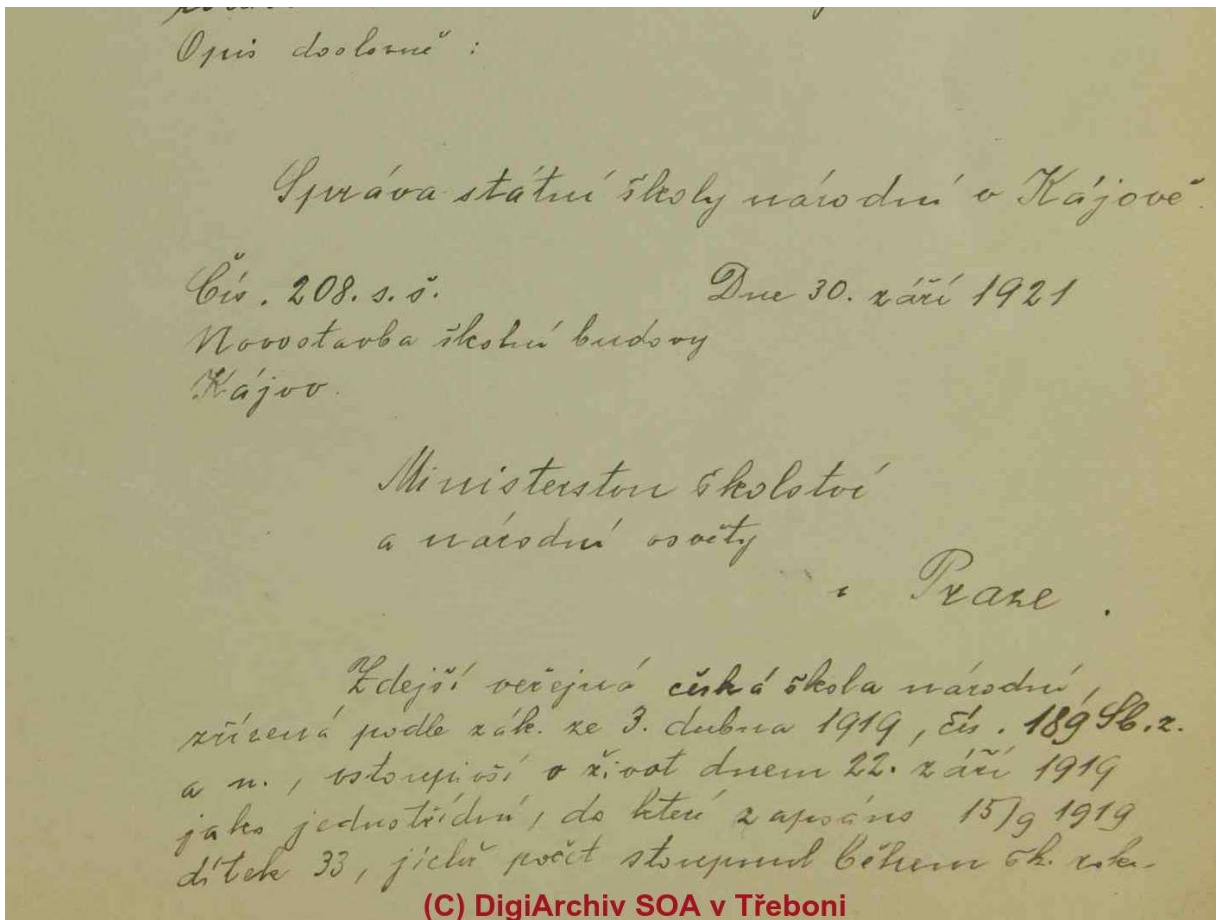 Opis doslovně :
Správa státní školy národní v Kájově.
Čís. 208. s. š. Dne 30. září 1921
Novostavba školní budovy
Kájov.
Ministerstvu školství
a národní osvěty
v Praze.
Zdejší veřejná česká škola národní,
zřízená podle zák. ze 3. dubna 1919, čís. 189 Sb. z.
a n., vstoupivší v život dnem 22. září 1919
jako jednotřídní, do které zapsáno 15/9 1919
dítek 33, jichž počet stoupnul během šk. roku
(C) DigiArchiv SOA v Třeboni